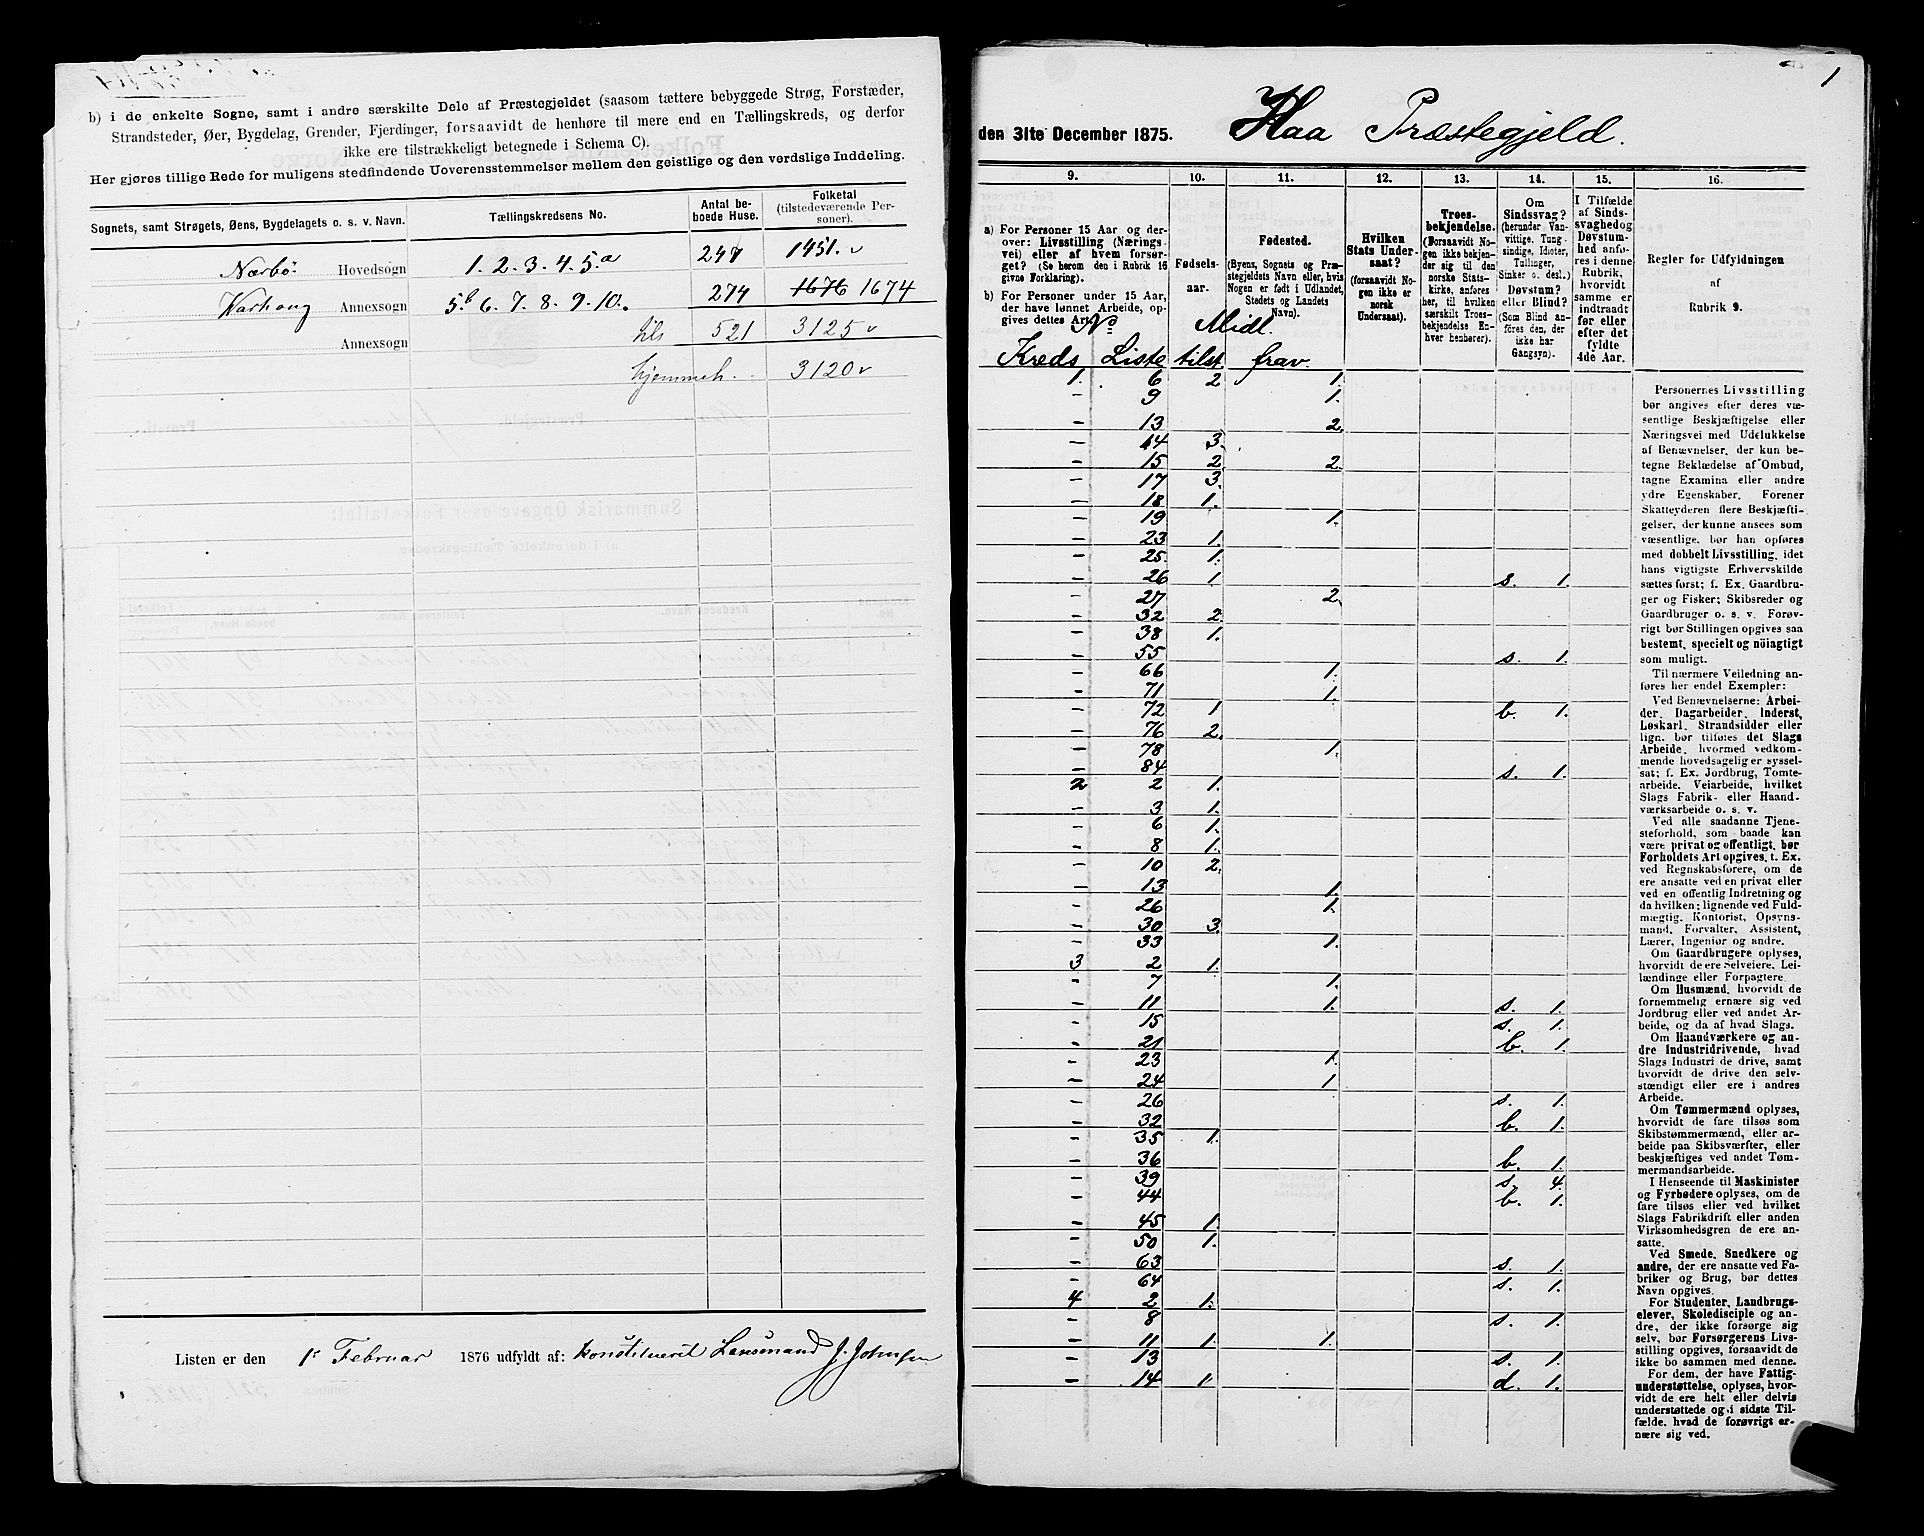 b) i de enkelte Sogne, samt i andre særskilte Dele af Præstegjeldet (saasom tættere bebyggede Strøg, Forstæder,
Strandsteder, Øer, Bygdelag, Grender, Fjerdinger, forsaavidt de henhøre til mere end en Tællingskreds, og derfor
ikke ere tilstrækkeligt betegnede i Schema C).
Her gjøres tillige Rede for muligens stedfindende Uoverensstemmelser mellem den geistlige og den verdslige Inddeling.
Sognets, samt Strøgets, Øens, Bygdelagets o. s. v. Navn. Tællingskredsens No. Antal beboede Huse. Folketal (tilstedeværende Personer).
Nærbø Hovedsogn 1. 2. 3. 4. 5.a 247 1451. v
Varhaug Annexsogn 5.b 6. 7. 8. 9. 10. 274 1676 1674
Annexsogn tils 521 3125 v
hjemmeh. 3120 v
Listen er den 1e Februar 1876 udfyldt af: konstitueret Lensmand J. Johnsen
1
den 31te December 1875. Haa Præstegjeld.
9. 10. 11. 12. 13. 14. 15. 16.
a) For Personer 15 Aar og derover: Livsstilling (Næringsvei) eller af hvem forsørget? (Se herom den i Rubrik 16 givne Forklaring).
b) For Personer under 15 Aar, der have lønnet Arbeide, opgives dettes Art.
Fødselsaar.
Fødested.
(Byens, Sognets og Præstegjeldets Navn eller, hvis Nogen er født i Udlandet, Stedets og Landets Navn).
Hvilken Stats Undersaat?
(forsaavidt Nogen ikke er norsk Undersaat).
Troesbekjendelse.
(Forsaavidt Nogen ikke bekjender sig til den norske Statskirke, anføres her, til hvilken særskilt Troesbekjendelse Enhver henhører).
Om Sindssvag? (herunder Vanvittige, Tungsindige, Idioter, Tullinger, Sinker o. desl.) Døvstum? eller Blind? (Som Blind anføres den, der ikke har Gangsyn).
I Tilfælde af Sindssvaghed og Døvstumhed anføres i denne Rubrik, hvorvidt samme er indtraadt før eller efter det fyldte 4de Aar.
Regler for Udfyldningen
af
Rubrik 9.
No Midl.
Kreds Liste tilst. frav.
1. 6 2 1.
- 9 1.
- 13 2.
- 14 3.
- 15 2 2.
- 17 3.
- 18 1.
- 19 1.
- 23 1.
- 25. 1.
- 26 1. s. 1.
- 27 2.
- 32 2.
- 38 1.
- 55 s. 1.
- 66 1.
- 71 1.
- 72 1 b. 1.
- 76 2.
- 78 1.
- 84 s. 1.
2 2 1.
- 3 1.
- 6 1.
- 8 1.
- 10 2.
- 13 1.
- 26 1.
- 30 3.
- 33 1.
3 2 1.
- 7 1.
- 11 1. s. 1.
- 15 s. 1.
- 21 b. 1.
- 23 1.
- 24 1.
- 26 s. 1.
- 32 b. 1.
- 35 1.
- 36 b. 1.
- 39 s. 4.
- 44 b. 1.
- 45 1.
- 50 1.
- 63 s. 1.
- 64 s. 1.
4 2 1.
- 8 s. 1.
- 11 1. 1.
- 13 s. 1.
- 14 1. d. 1.
Personernes Livsstilling
bør angives efter deres væsentlige
Beskjæftigelse eller
Næringsvei med Udelukkelse
af Benævnelser, der kun betegne
Beklædelse af Ombud,
tagne Examina eller andre
ydre Egenskaber. Forener
Skatteyderen flere Beskjæftigelser,
der kunne ansees som
væsentlige, bør han opføres
med dobbelt Livsstilling, idet
hans vigtigste Erhvervskilde
sættes først; f. Ex. Gaardbruger
og Fisker; Skibsreder og
Gaardbruger o. s. v. Forøvrigt
bør Stillingen opgives saa
bestemt, specielt og nöiagtigt
som muligt.
Til nærmere Veiledning anføres
her endel Exempler:
Ved Benævnelserne: Arbeider,
Dagarbeider, Inderst,
Løskarl, Strandsidder eller
lign. bør tilføies det Slags
Arbeide, hvormed vedkommende
hovedsagelig er sysselsat;
f. Ex. Jordbrug, Tomtearbeide,
Veiarbeide, hvilket
Slags Fabrik- eller Haandværksarbeide
o. s. v.
Ved alle saadanne Tjenesteforhold,
som baade kan
være privat og offentligt, bør
Forholdets Art opgives, t. Ex.
ved Regnskabsførere, om de
ere ansatte ved en privat eller
ved en offentlig Indretning og
da hvilken; lignende ved Fuldmægtig,
Kontorist, Opsynsmand,
Forvalter, Assistent,
Lærer, Ingeniør og andre.
Om Gaardbrugere oplyses,
hvorvidt de ere Selveiere, Leilændinge
eller Forpagtere.
Om Husmænd, hvorvidt de
fornemmelig ernære sig ved
Jordbrug eller ved andet Arbeide,
og da af hvad Slags.
Om Haandværkere og andre
Industridrivende, hvad
Slags Industri de drive, samt
hvorvidt de drive den selvstændigt
eller ere i andres
Arbeide.
Om Tømmermænd oplyses,
hvorvidt de fare tilsøs som
Skibstømmermænd, eller arbeide
paa Skibsværfter, eller
beskjæftiges ved andet Tømmermandsarbeide.
I Henseende til Maskinister
og Fyrbødere oplyses, om de
fare tilsøs eller ved hvilket
Slags Fabrikdrift eller anden
Virksomhedsgren de ere ansatte.
Ved Smede, Snedkere og
andre, der ere ansatte ved Fabriker
og Brug, bør dettes
Navn opgives.
For Studenter, Landbrugselever,
Skoledisciple og andre,
der ikke forsørge sig
selv, bør Forsørgerens Livsstilling
opgives, forsaavidt de
ikke bo sammen med denne.
For dem, der have Fattigunderstøttelse,
oplyses, hvorvidt
de ere helt eller delvis
understøttede og i sidste Tilfælde,
hvad de forøvrigt ernære
sig ved.